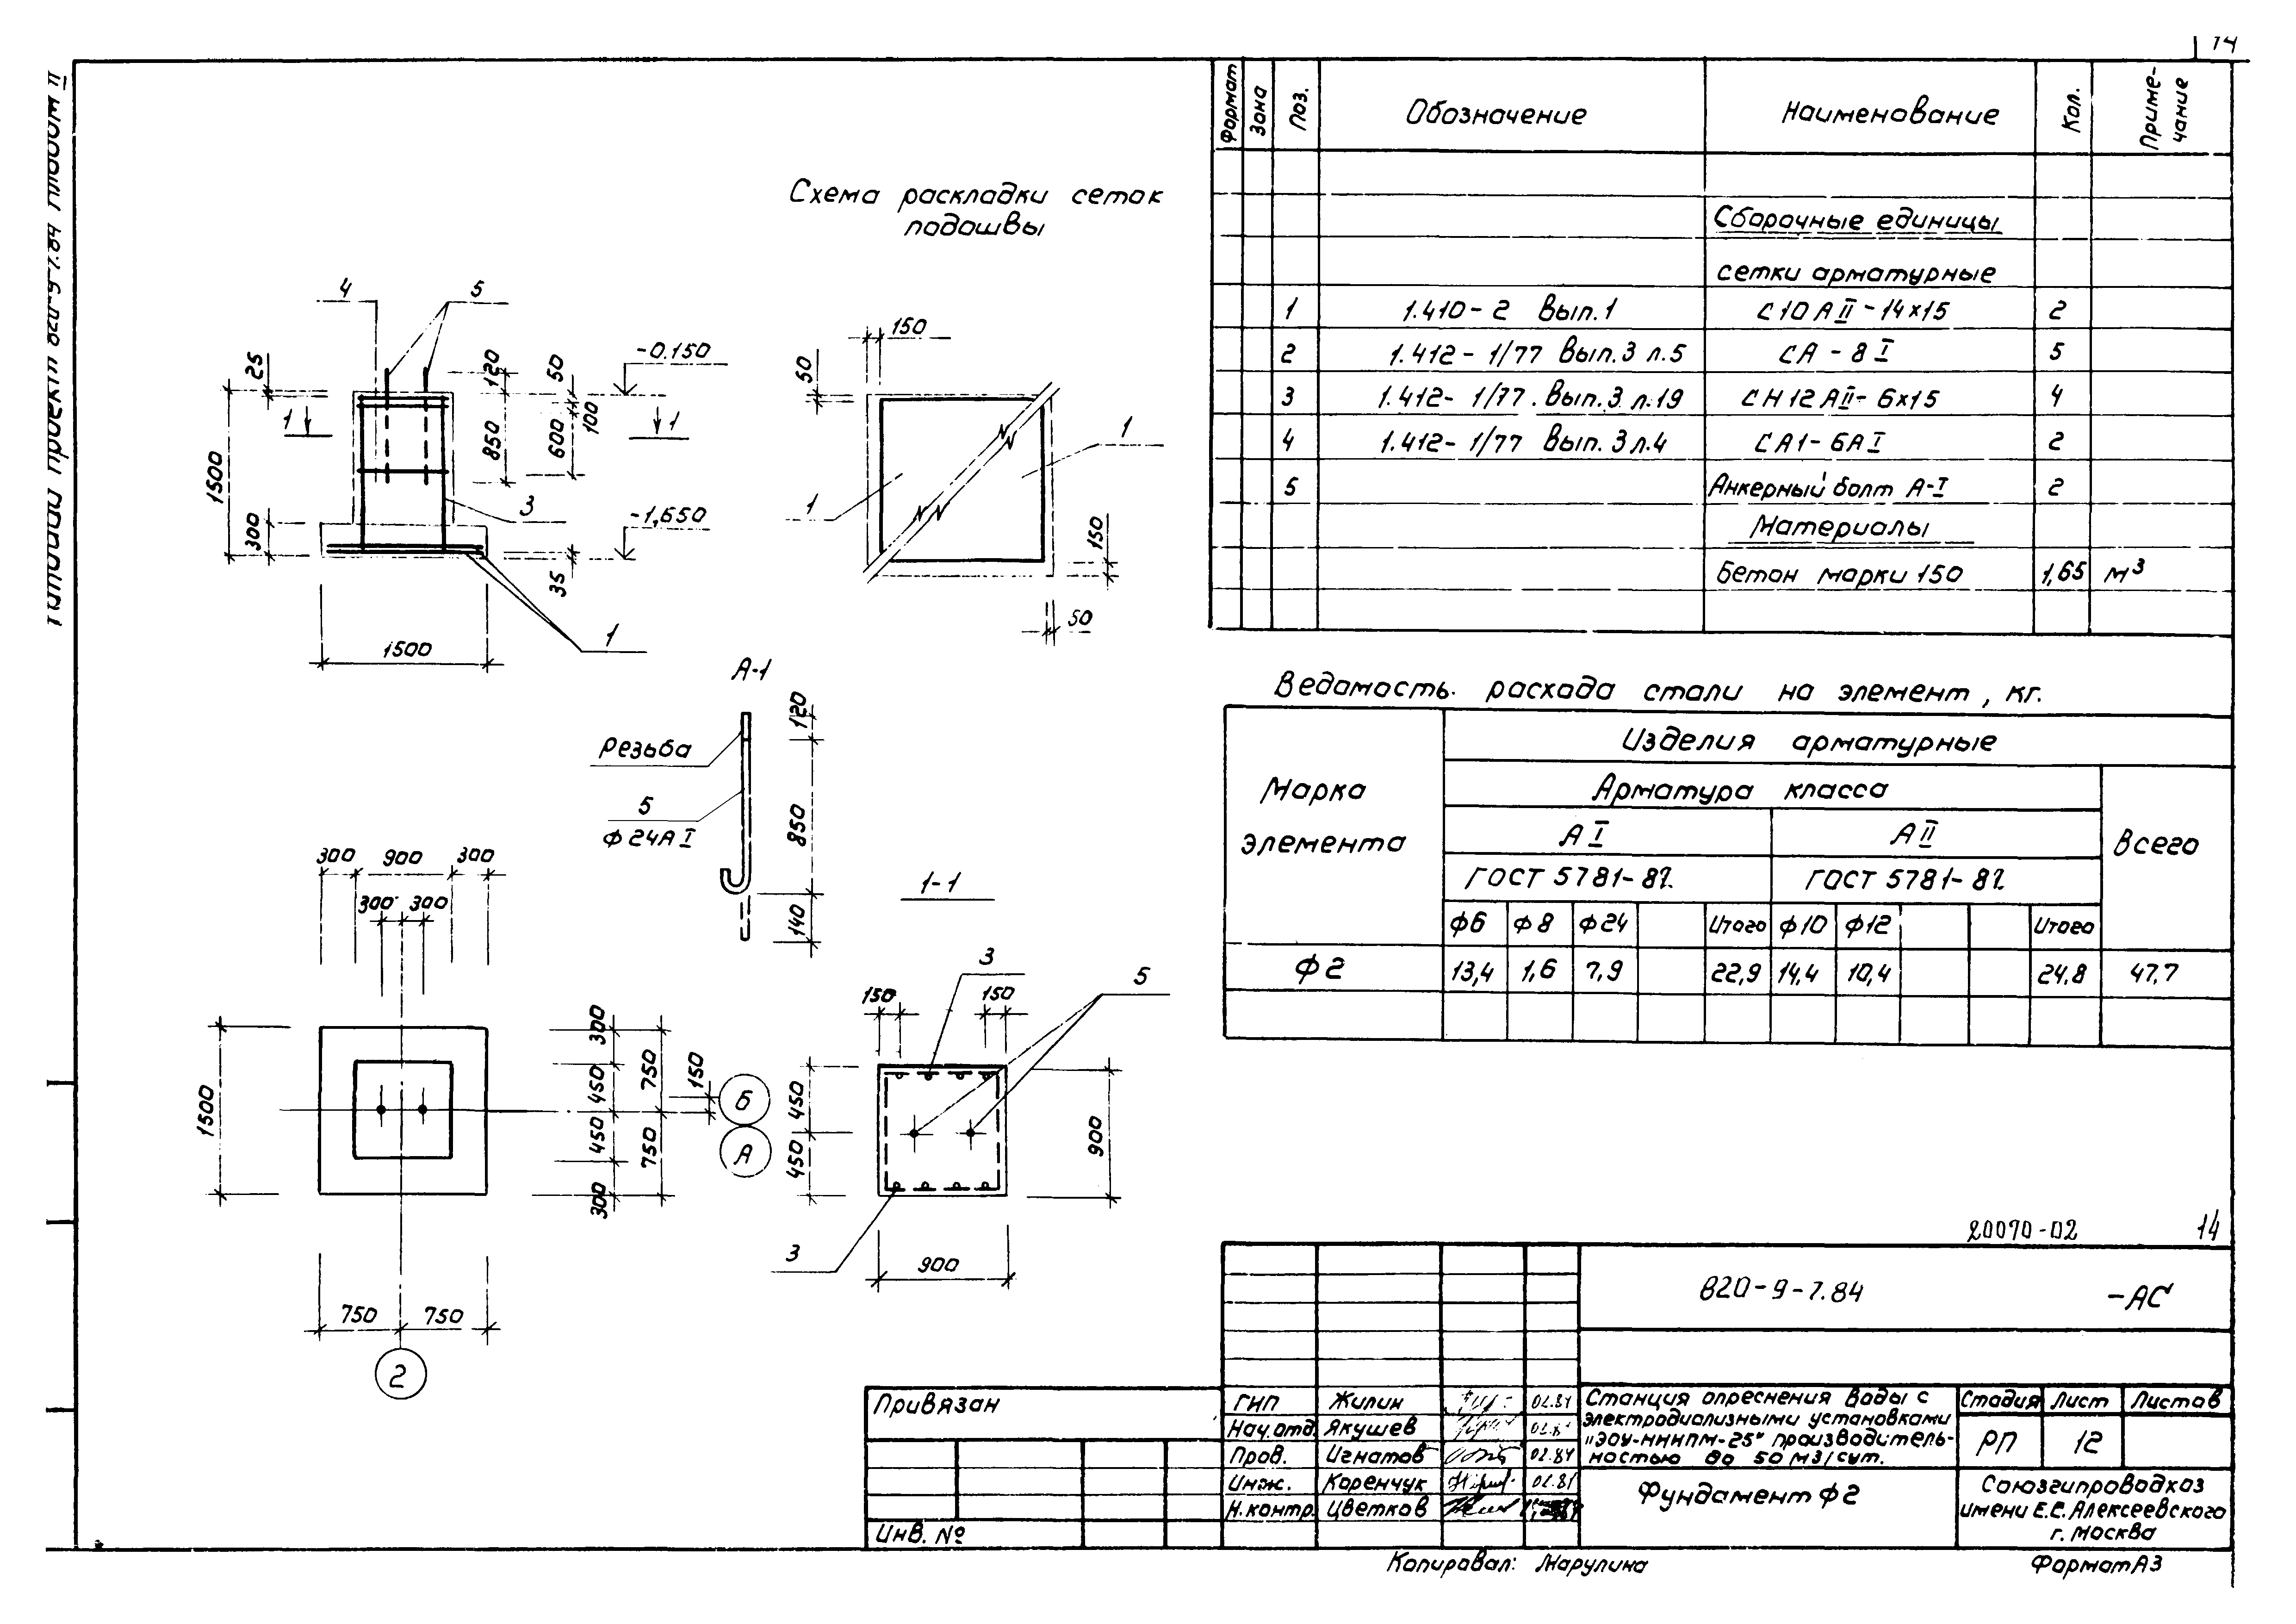 14
Типовой проект 820-9-7.84 Альбом II
Схема раскладки сеток
подошвы
4
5
25
120
50
-0.150
1
1
1500
850
600
100
300
3
-1,650
35
1500
1
150
50
1
1
150
50
А-1
Резьба
5
ф24АI
120
850
140
300 900 300
300 300
1500
300
450
450
300
750
750
150
Б
А
750 750
2
1-1
3
5
150
150
450
450
900
3
900
Формат
Зона
Поз.
Обозначение
Наименование
Кол.
Приме-
чание
Сборочные единицы
сетки арматурные
1 1.410-2 Вып.1 С10АII-14х15 2
2 1.412-1/77 Вып.3 л.5 СА-8I 5
3 1.412-1/77. Вып.3 л.19 СН12АII-6х15 4
4 1.412-1/77 Вып.3 л.4 СА1-6АI 2
5 Анкерный болт А-I 2
Материалы
Бетон марки 150 1,65 м3
Ведомость расхода стали на элемент, кг.
Марка
элемента
Изделия арматурные
Арматура класса
Всего
АI АII
ГОСТ 5781-82. ГОСТ 5781-82
ф6 ф8 ф24 Итого ф10 ф12 Итого
Ф2 13,4 1,6 7,9 22,9 14,4 10,4 24.8 47,7
20070-02 14
820-9-7.84 -АС
Привязан
Инв. №
ГИП Жилин 02.84
Нач.отд. Якушев 02.8
Пров. Игнатов 02.84
Инж. Коренчук 02.81
Н.контр. Цветков
Станция опреснения воды с
электродиализными установками
"ЭОУ-НИИПМ-25" производитель-
ностью до 50 м3/сут.
Стадия Лист Листов
РП 12
Фундамент Ф2
Союзгипроводхоз
имени Е.Е. Алексеевского
г. Москва
Копировал: Марулина
Формат А3